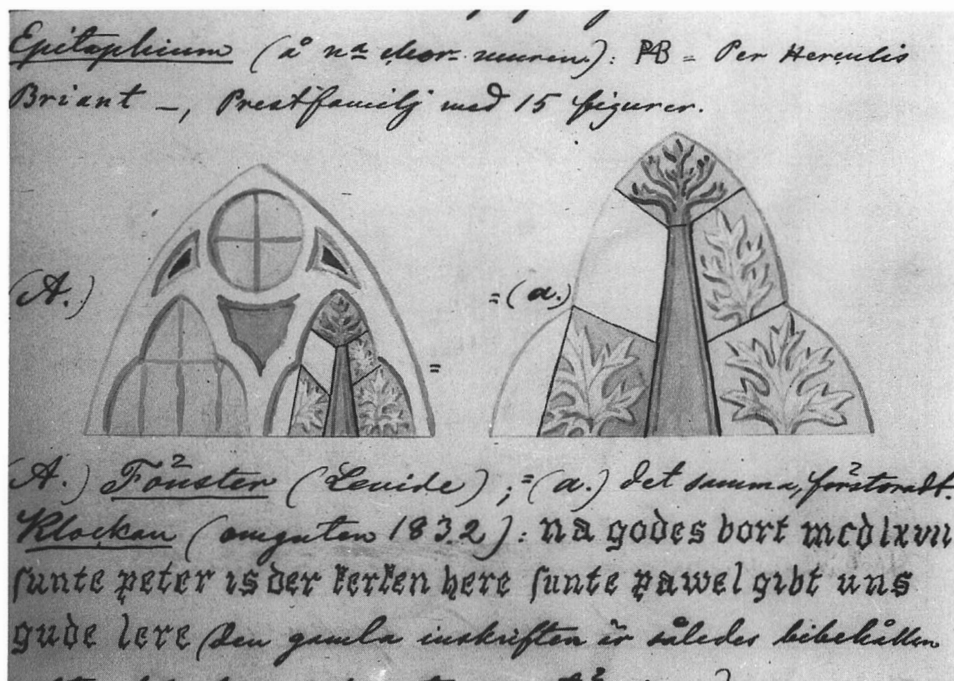 Epitaphium (å n^a chor-muren): PHB = Per Herculis
Briant –, Prestfamilj med 15 figurer.
(A.)
= (a.)
=
(A.) Fönster (Levide) ; = (a.) det samma, förstoradt.
Klockan (omguten 1832): na godes bort mcdlxvii
sunte peter is der kerken here sunte pawel gibt uns
gude lere (den gamla inskriften är således bibehållen